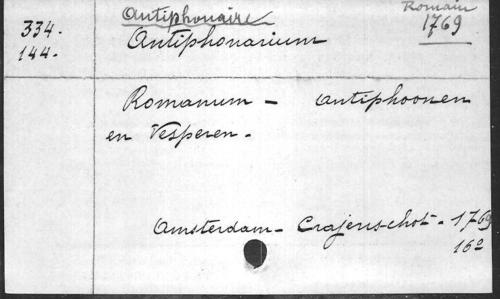 Antiphonaire Romain
334. Antiphonarium 1769
144.
Romanum - Antiphoonen
en Vesperen.
Amsterdam - Crajenschot - 1769
16º